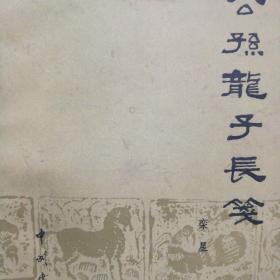 公孫龍子長箋
欒星
中州